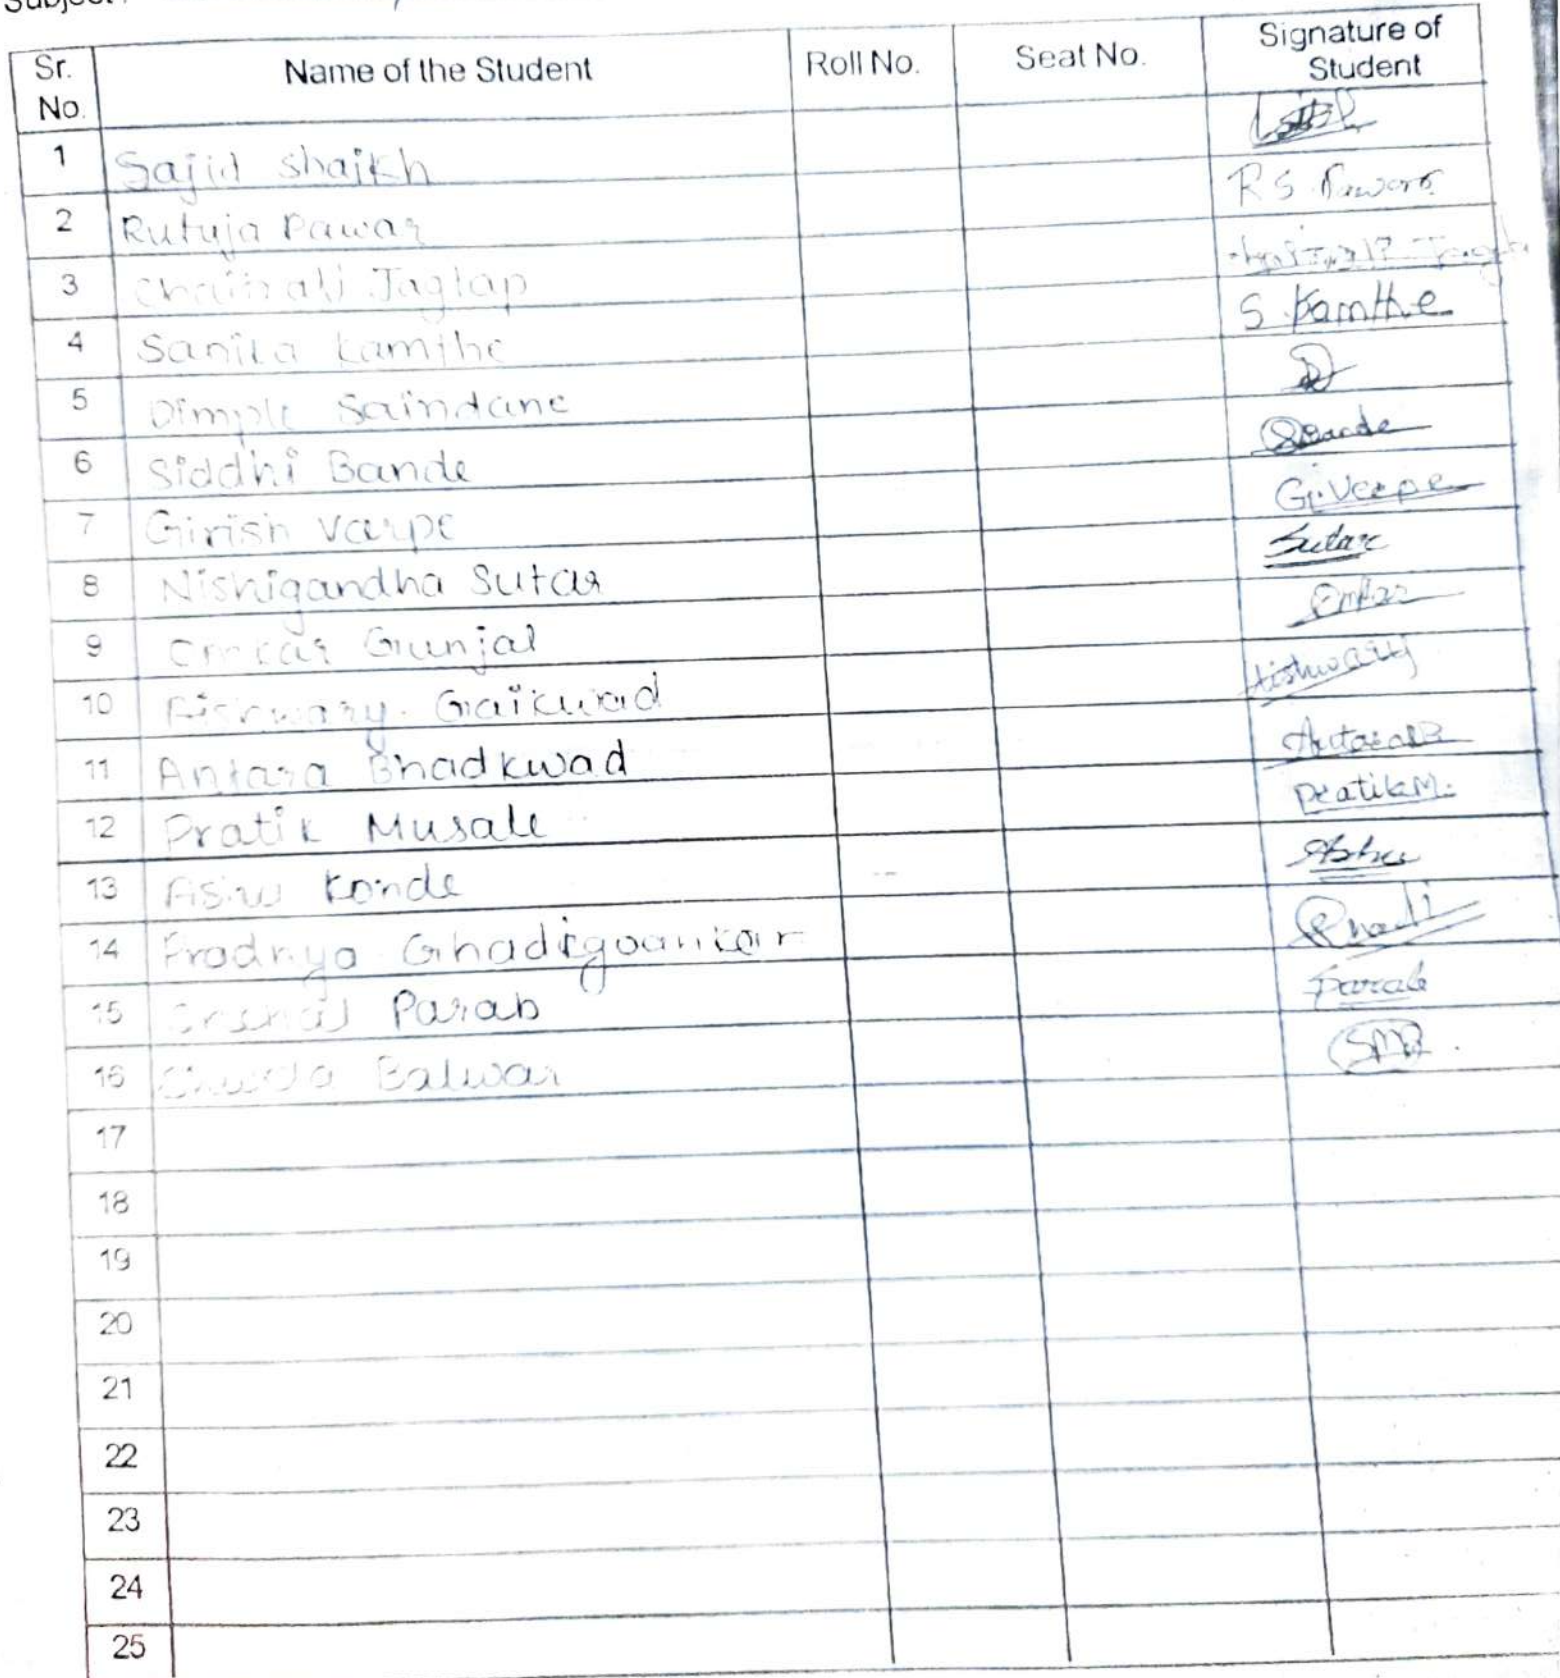 Sr. No. Name of the Student Roll No. Seat No. Signature of Student
1 Sajid shaikh
2 Rutuja Pawar R S Pawar
3 Chaitrali Jagtap
4 Sanika Kamthe S Kamthe
5 Dimple Saindane
6 Siddhi Bande Bande
7 Girish Varpe G. Verpe
8 Nishigandha Sutar Sutar
9 Omkar Gunjal Omkar
10 Aishwary Gaikwad Aishwary
11 Antara Bhadkwad Antara B
12 Pratik Musale Pratik M.
13 Konde
14 Pradnya Ghadigoankar
15 Parab Parab
16 Balwar SMB
17
18
19
20
21
22
23
24
25